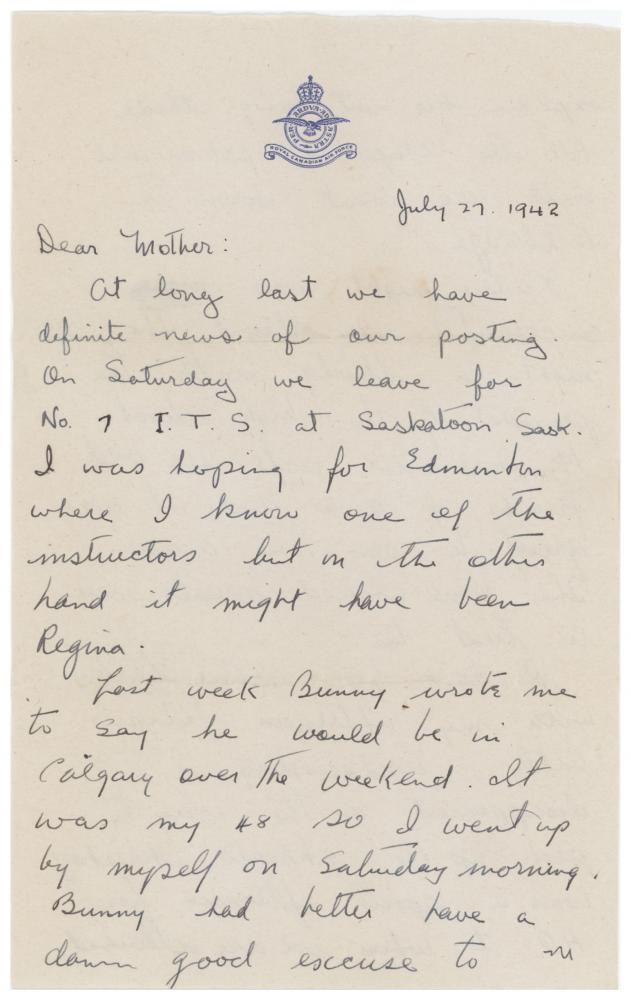 PER ARDVA AD ASTRA
ROYAL CANADIAN AIR FORCE
July 27. 1942
Dear Mother:
At long last we have
definite news of our posting.
On Saturday we leave for
No. 7 I.T.S. at Saskatoon Sask.
I was hoping for Edmonton
where I know one of the
instructors but on the other
hand it might have been
Regina.
Last week Bunny wrote me
to say he would be in
Calgary over the weekend. It
was my 48 so I went up
by myself on Saturday morning.
Bunny had better have a
damn good excuse to